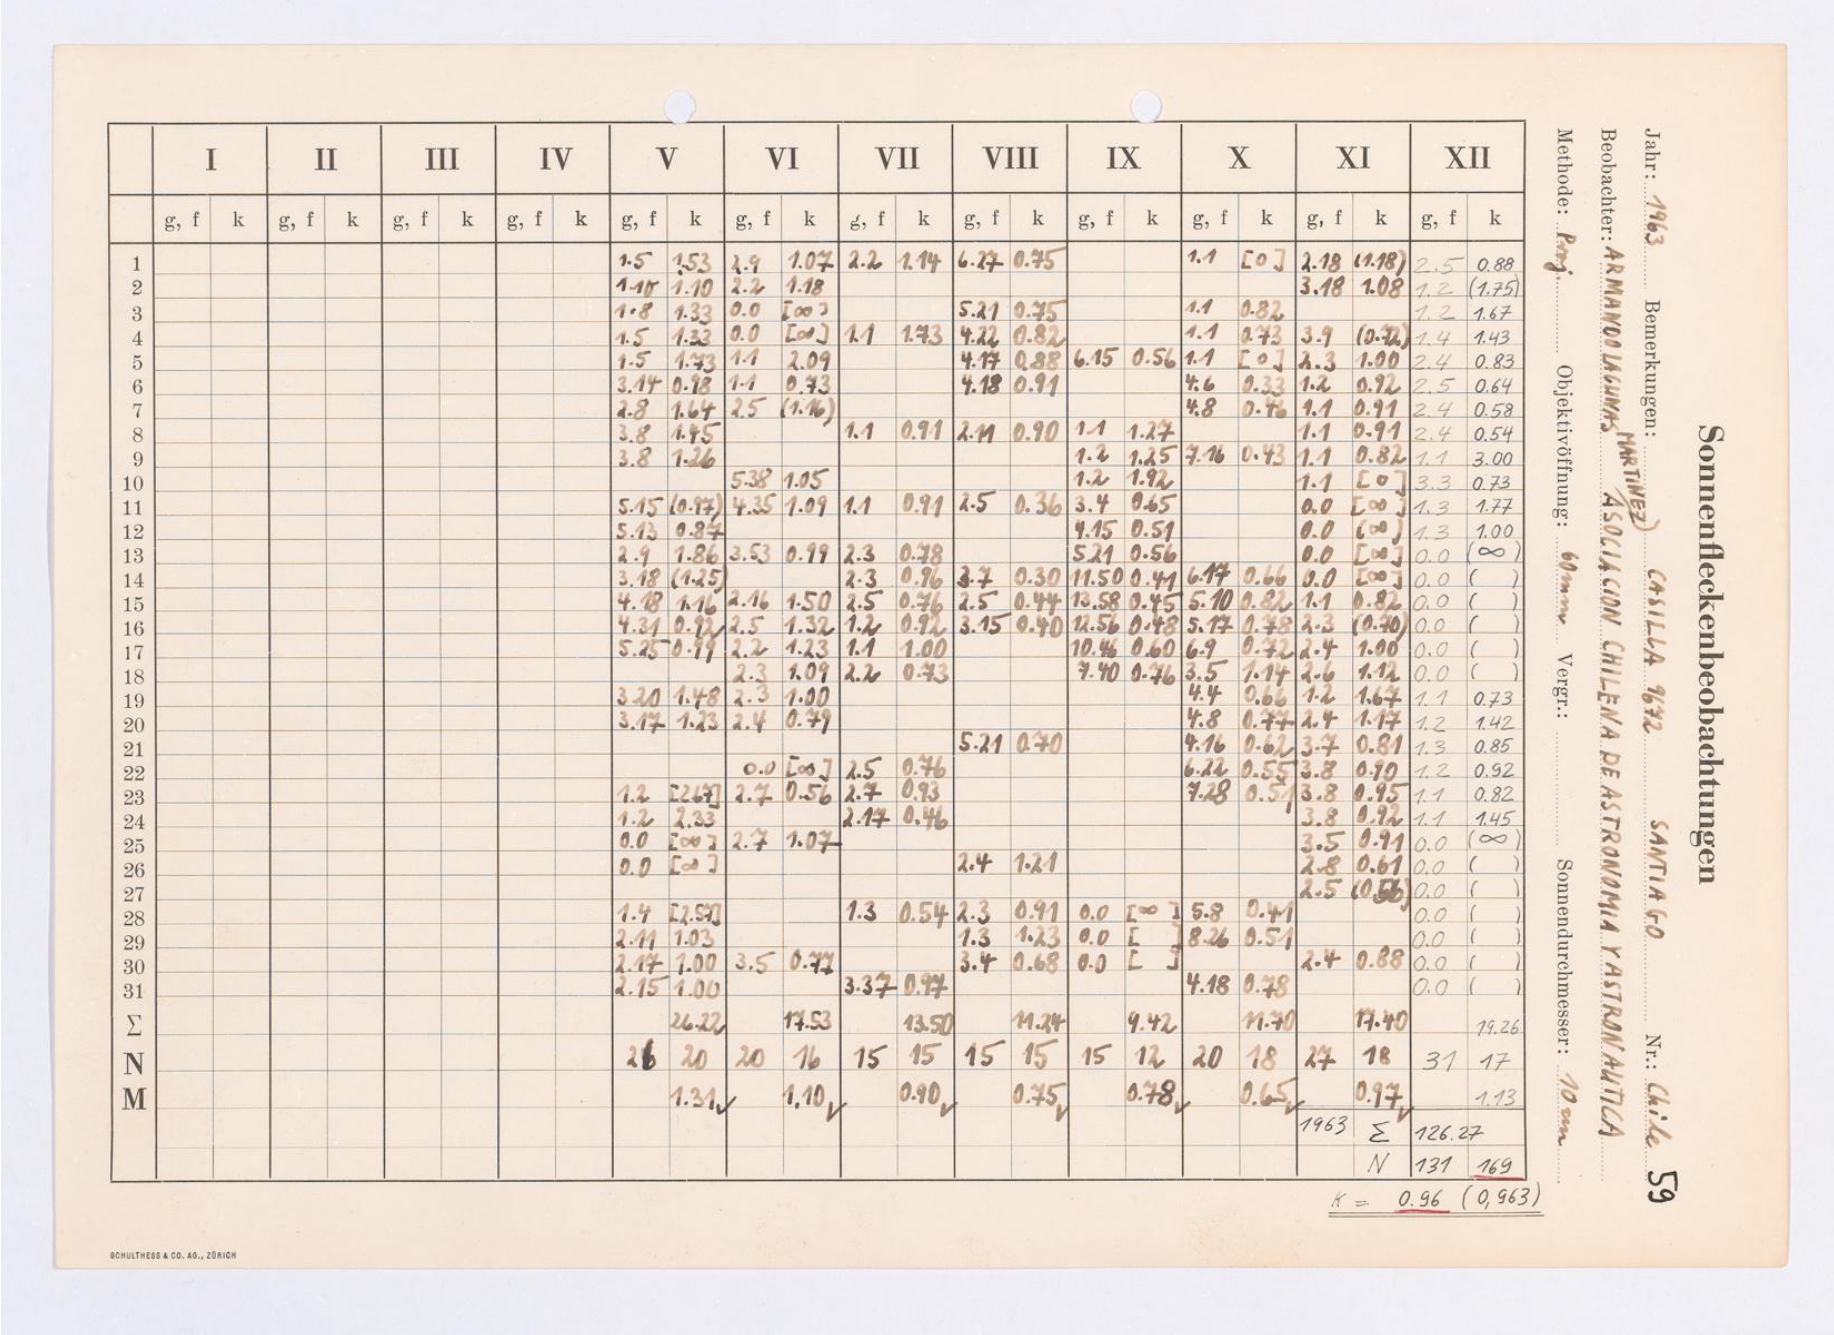 Sonnenfleckenbeobachtungen
Jahr: 1963 Bemerkungen: CASILLA 9672 SANTIAGO Nr.: Chile 59
Beobachter: ARMANDO LAGUNAS MARTINEZ) ASOCIACION CHILENA DE ASTRONOMIA Y ASTRONAUTICA
Methode: Proj. Objektivöffnung: 60mm Vergr.: Sonnendurchmesser: 10 cm
I II III IV V VI VII VIII IX X XI XII
g, f k g, f k g, f k g, f k g, f k g, f k g, f k g, f k g, f k g, f k g, f k g, f k
1 1.5 1.53 2.9 1.07 2.2 1.14 6.27 0.75 1.1 [0] 2.18 (1.18) 2.5 0.88
2 1.10 1.10 2.2 1.18 3.18 1.08 1.2 (1.75)
3 1.8 1.33 0.0 [∞] 5.21 0.75 1.1 0.82 1.2 1.67
4 1.5 1.33 0.0 [∞] 1.1 1.73 4.22 0.82 1.1 0.73 3.9 (0.72) 1.4 1.43
5 1.5 1.73 1.1 2.09 4.17 0.88 6.15 0.56 1.1 [0] 2.3 1.00 2.4 0.83
6 3.14 0.98 1.1 0.73 4.18 0.91 4.6 0.33 1.2 0.92 2.5 0.64
7 2.8 1.64 2.5 (1.16) 4.8 0.46 1.1 0.91 2.4 0.58
8 3.8 1.45 1.1 0.91 2.11 0.90 1.1 1.27 1.1 0.91 2.4 0.54
9 3.8 1.26 1.2 1.25 7.16 0.43 1.1 0.82 1.1 3.00
10 5.38 1.05 1.2 1.92 1.1 [0] 3.3 0.73
11 5.15 (0.97) 4.35 1.09 1.1 0.91 2.5 0.36 3.4 0.65 0.0 [∞] 1.3 1.77
12 5.13 0.87 4.15 0.51 0.0 (∞] 1.3 1.00
13 2.9 1.86 3.53 0.99 2.3 0.78 5.21 0.56 0.0 [∞] 0.0 (∞)
14 3.18 (1.25) 2.3 0.96 3.7 0.30 11.50 0.41 6.17 0.66 0.0 [∞] 0.0 ( )
15 4.18 1.16 2.16 1.50 2.5 0.76 2.5 0.44 13.58 0.45 5.10 0.82 1.1 0.82 0.0 ( )
16 4.31 0.92 2.5 1.32 1.2 0.92 3.15 0.40 12.56 0.48 5.17 0.78 2.3 (0.70) 0.0 ( )
17 5.25 0.99 2.2 1.23 1.1 1.00 10.46 0.60 6.9 0.72 2.4 1.00 0.0 ( )
18 2.3 1.09 2.2 0.73 7.40 0.76 3.5 1.14 2.6 1.12 0.0 ( )
19 3.20 1.48 2.3 1.00 4.4 0.66 1.2 1.67 1.1 0.73
20 3.17 1.23 2.4 0.79 4.8 0.77 2.4 1.17 1.2 1.42
21 5.21 0.70 4.16 0.62 3.7 0.81 1.3 0.85
22 0.0 [∞] 2.5 0.76 6.22 0.55 3.8 0.90 1.2 0.92
23 1.2 [2.67] 2.7 0.56 2.7 0.93 7.28 0.51 3.8 0.95 1.1 0.82
24 1.2 2.33 2.17 0.46 3.8 0.92 1.1 1.45
25 0.0 [∞] 2.7 1.07 3.5 0.91 0.0 (∞)
26 0.0 [∞] 2.4 1.21 2.8 0.61 0.0 ( )
27 2.5 (0.56) 0.0 ( )
28 1.4 [2.57] 1.3 0.54 2.3 0.91 0.0 [∞] 5.8 0.41 0.0 ( )
29 2.11 1.03 1.3 1.23 0.0 [ 8.26 0.51 0.0 ( )
30 2.17 1.00 3.5 0.77 3.4 0.68 0.0 [ ] 2.4 0.88 0.0 ( )
31 2.15 1.00 3.37 0.97 4.18 0.78 0.0 ( )
Σ 26.22 17.53 13.50 11.24 9.42 11.70 17.40 19.26
N 26 20 20 16 15 15 15 15 15 12 20 18 27 18 31 17
M 1.31✓ 1.10✓ 0.90✓ 0.75✓ 0.78✓ 0.65✓ 0.97✓ 1.13
1963 Σ 126.27
N 131 169
K = 0.96 (0,963)
SCHULTHESS & CO. AG., ZÜRICH